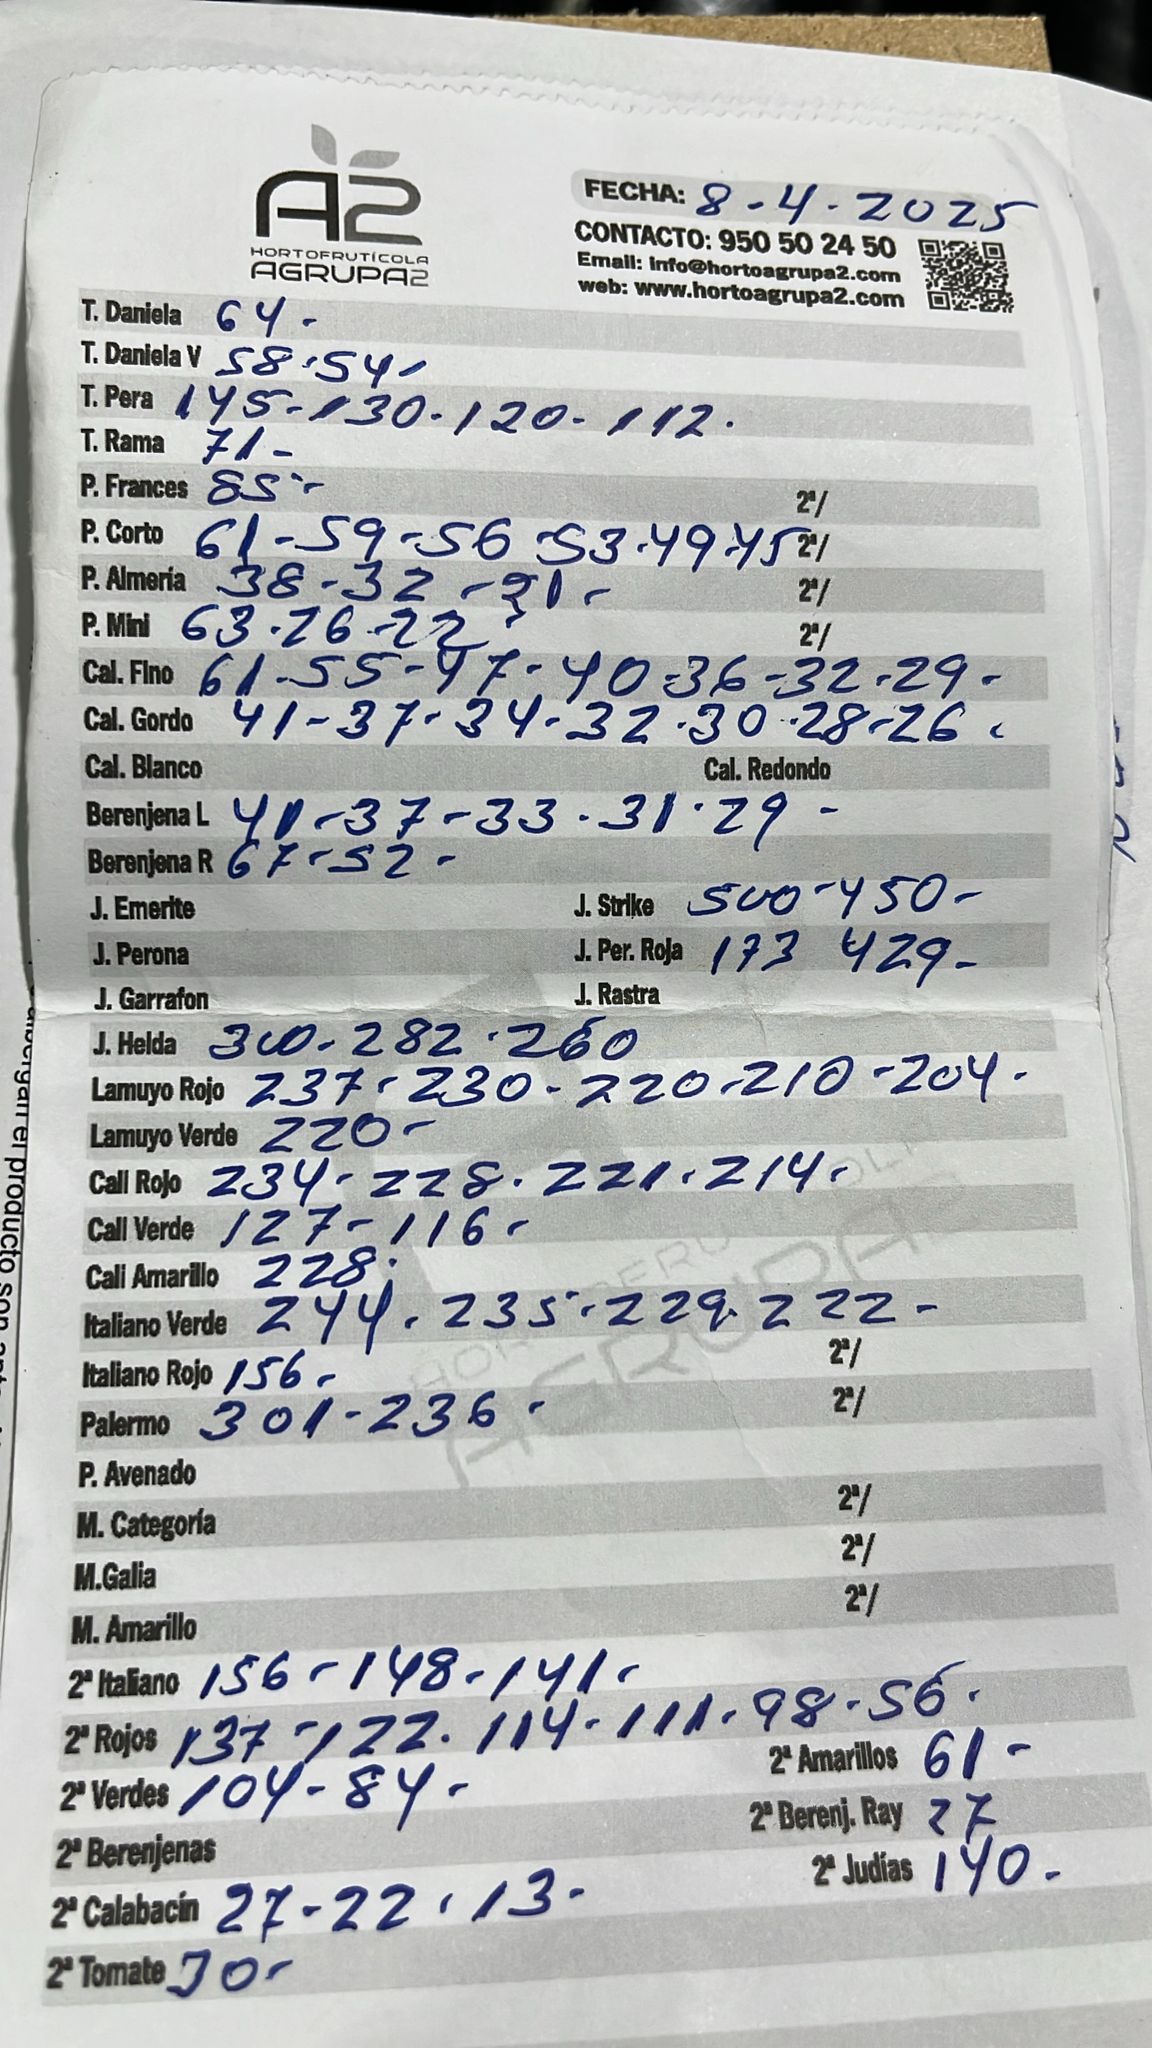 A2
HORTOFRUTÍCOLA
AGRUPA2
FECHA: 8-4-2025
CONTACTO: 950 50 24 50
Email: info@hortoagrupa2.com
web: www.hortoagrupa2.com
T. Daniela 64-
T. Daniela V 58-54-
T. Pera 145-130-120-112.
T. Rama 71-
P. Frances 85- 2ª/
P. Corto 61-59-56-53-49-45 2ª/
P. Almería 38-32- 2ª/
P. Mini 63-26-22 2ª/
Cal. Fino 61-55-47-40-36-32-29-
Cal. Gordo 41-37-34-32-30-28-26-
Cal. Blanco Cal. Redondo
Berenjena L 41-37-33-31-29-
Berenjena R 67-52-
J. Emerite J. Strike 500-450-
J. Perona J. Per. Roja 173 429-
J. Garrafon J. Rastra
J. Helda 300-282-260
Lamuyo Rojo 237-230-220-210-204-
Lamuyo Verde 220-
Cali Rojo 234-228-221-214-
Cali Verde 127-116-
Cali Amarillo 228-
Italiano Verde 244-235-229-222-
Italiano Rojo 156- 2ª/
Palermo 301-236- 2ª/
P. Avenado
M. Categoría 2ª/
M.Galia 2ª/
M. Amarillo 2ª/
2ª Italiano 156-148-141-
2ª Rojos 137-122-114-111-98-56-
2ª Verdes 104-84- 2ª Amarillos 61-
2ª Berenjenas 2ª Berenj. Ray 27
2ª Calabacín 27-22-13- 2ª Judías 140-
2ª Tomate 30-